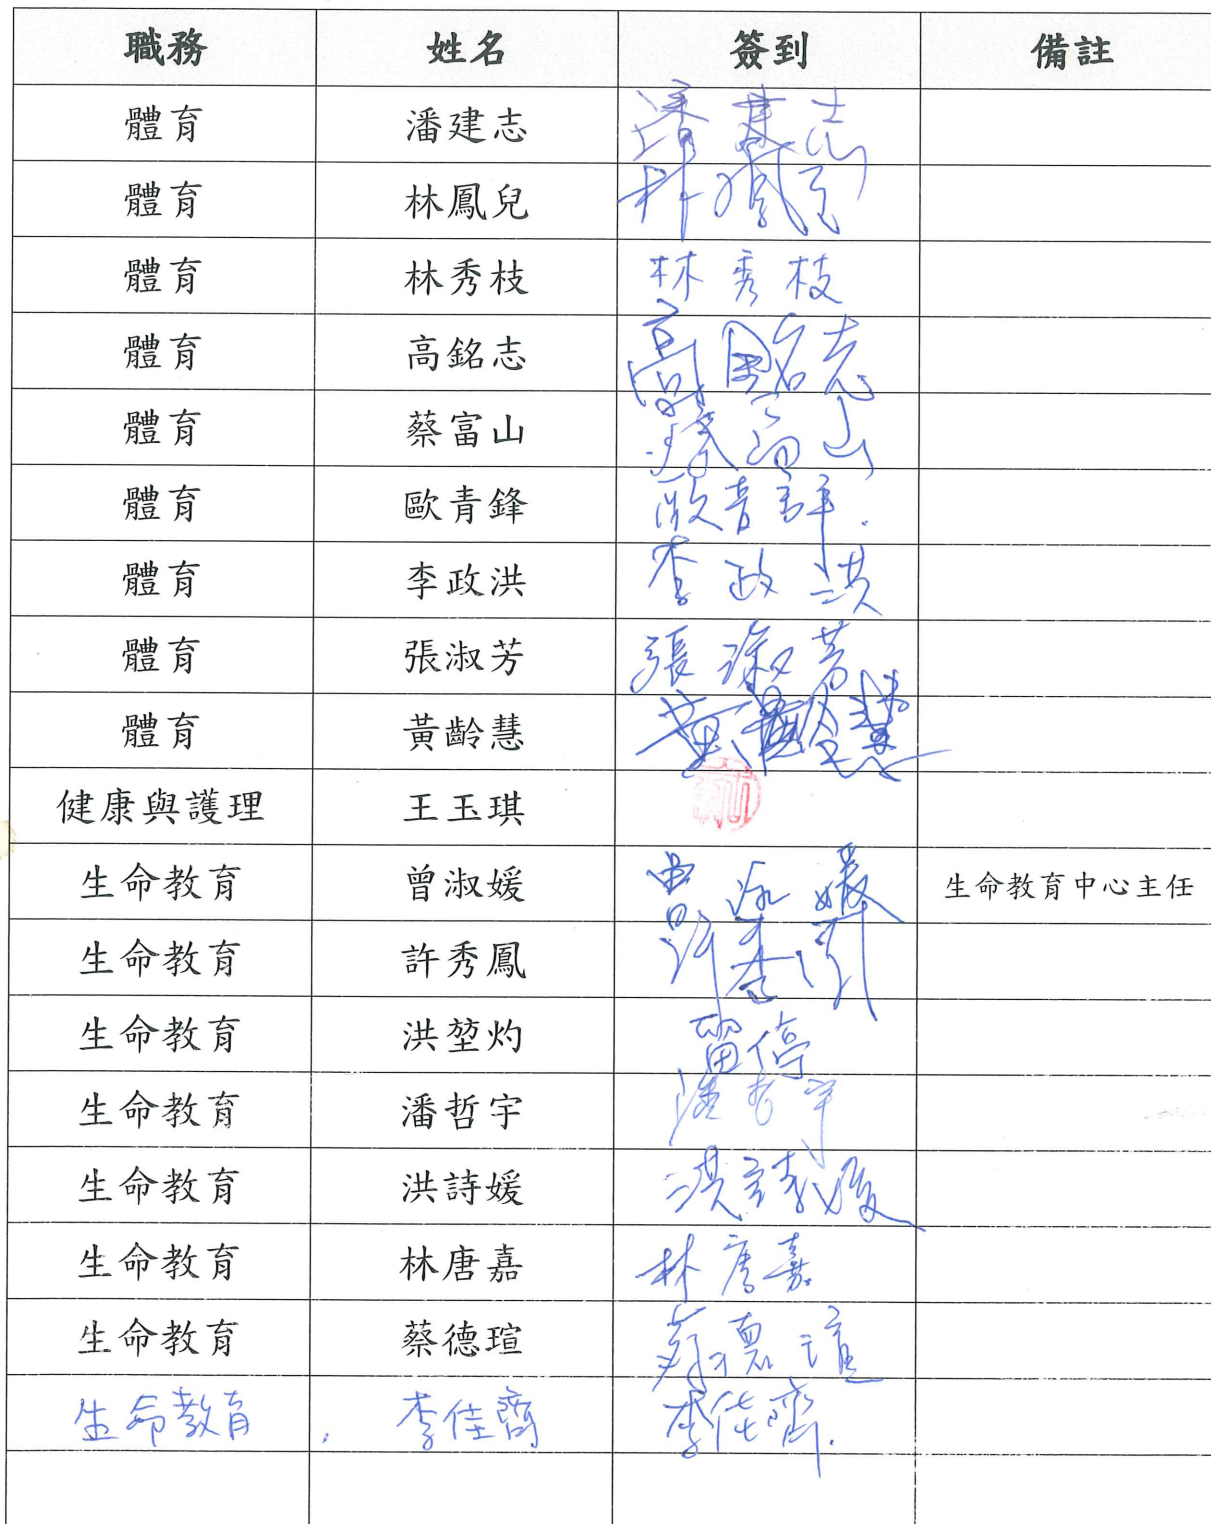 職務 姓名 簽到 備註
體育 潘建志 潘建志
體育 林鳳兒 林鳳兒
體育 林秀枝 林秀枝
體育 高銘志 高銘志
體育 蔡富山 蔡富山
體育 歐青鋒 歐青鋒
體育 李政洪 李政洪
體育 張淑芳 張淑芳
體育 黃齡慧 黃齡慧
健康與護理 王玉琪
生命教育 曾淑媛 曾淑媛 生命教育中心主任
生命教育 許秀鳳 許秀鳳
生命教育 洪堃灼 留停
生命教育 潘哲宇 潘哲宇
生命教育 洪詩媛 洪詩媛
生命教育 林唐嘉 林唐嘉
生命教育 蔡德瑄 蔡德瑄
生命教育 李佳 李佳